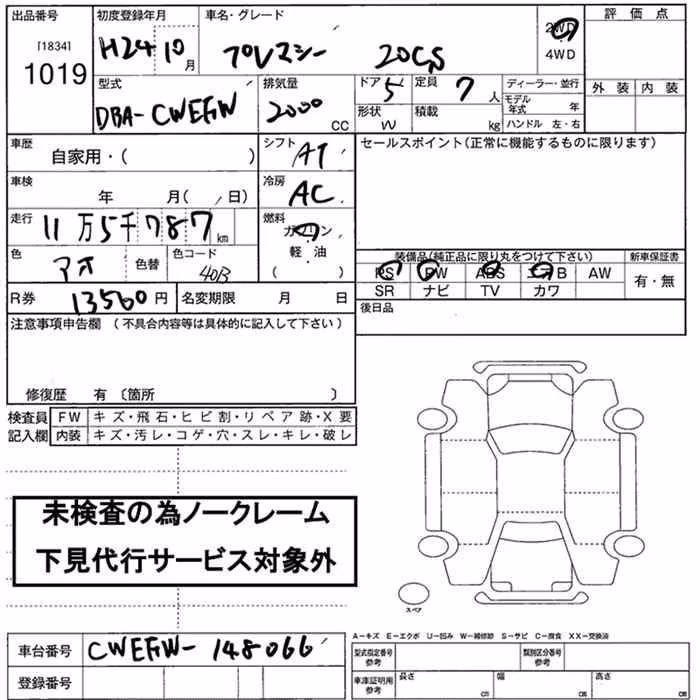 出品番号 初度登録年月 車名・グレード 評価点
[1834]
1019
H24 10月 プレマシー 20CS 2WD
4WD
外装 内装
型式 排気量 ドア 5 定員 7人 ディーラー・並行
DBA-CWEFW 2000CC 形状 W 積載 kg モデル年式 年
ハンドル 左・右
車歴 自家用・( ) シフト AT セールスポイント(正常に機能するものに限ります)
車検 年 月( 日) 冷房 AC
走行 11万5千787km 燃料 ガソリン
軽・油
( )
色 アオ 色替 色コード 40B
装備品(純正品に限り丸をつけて下さい) 新車保証書
PS PW ABS エアB AW 有・無
SR ナビ TV カワ
R券 13560円 名変期限 月 日 後日品
注意事項申告欄(不具合内容等は具体的に記入して下さい)
修復歴 有〔箇所 〕
検査員 FW キズ・飛石・ヒビ割・リペア跡・X要
記入欄 内装 キズ・汚レ・コゲ・穴・スレ・キレ・破レ
未検査の為ノークレーム
下見代行サービス対象外
スペア
A-キズ E-エクボ U-凹み W-補修跡 S-サビ C-腐食 XX-交換済
車台番号 CWEFW-148066
登録番号
型式指定番号参考 類別区分番号参考
車庫証明用参考 長さ cm 幅 cm 高さ cm